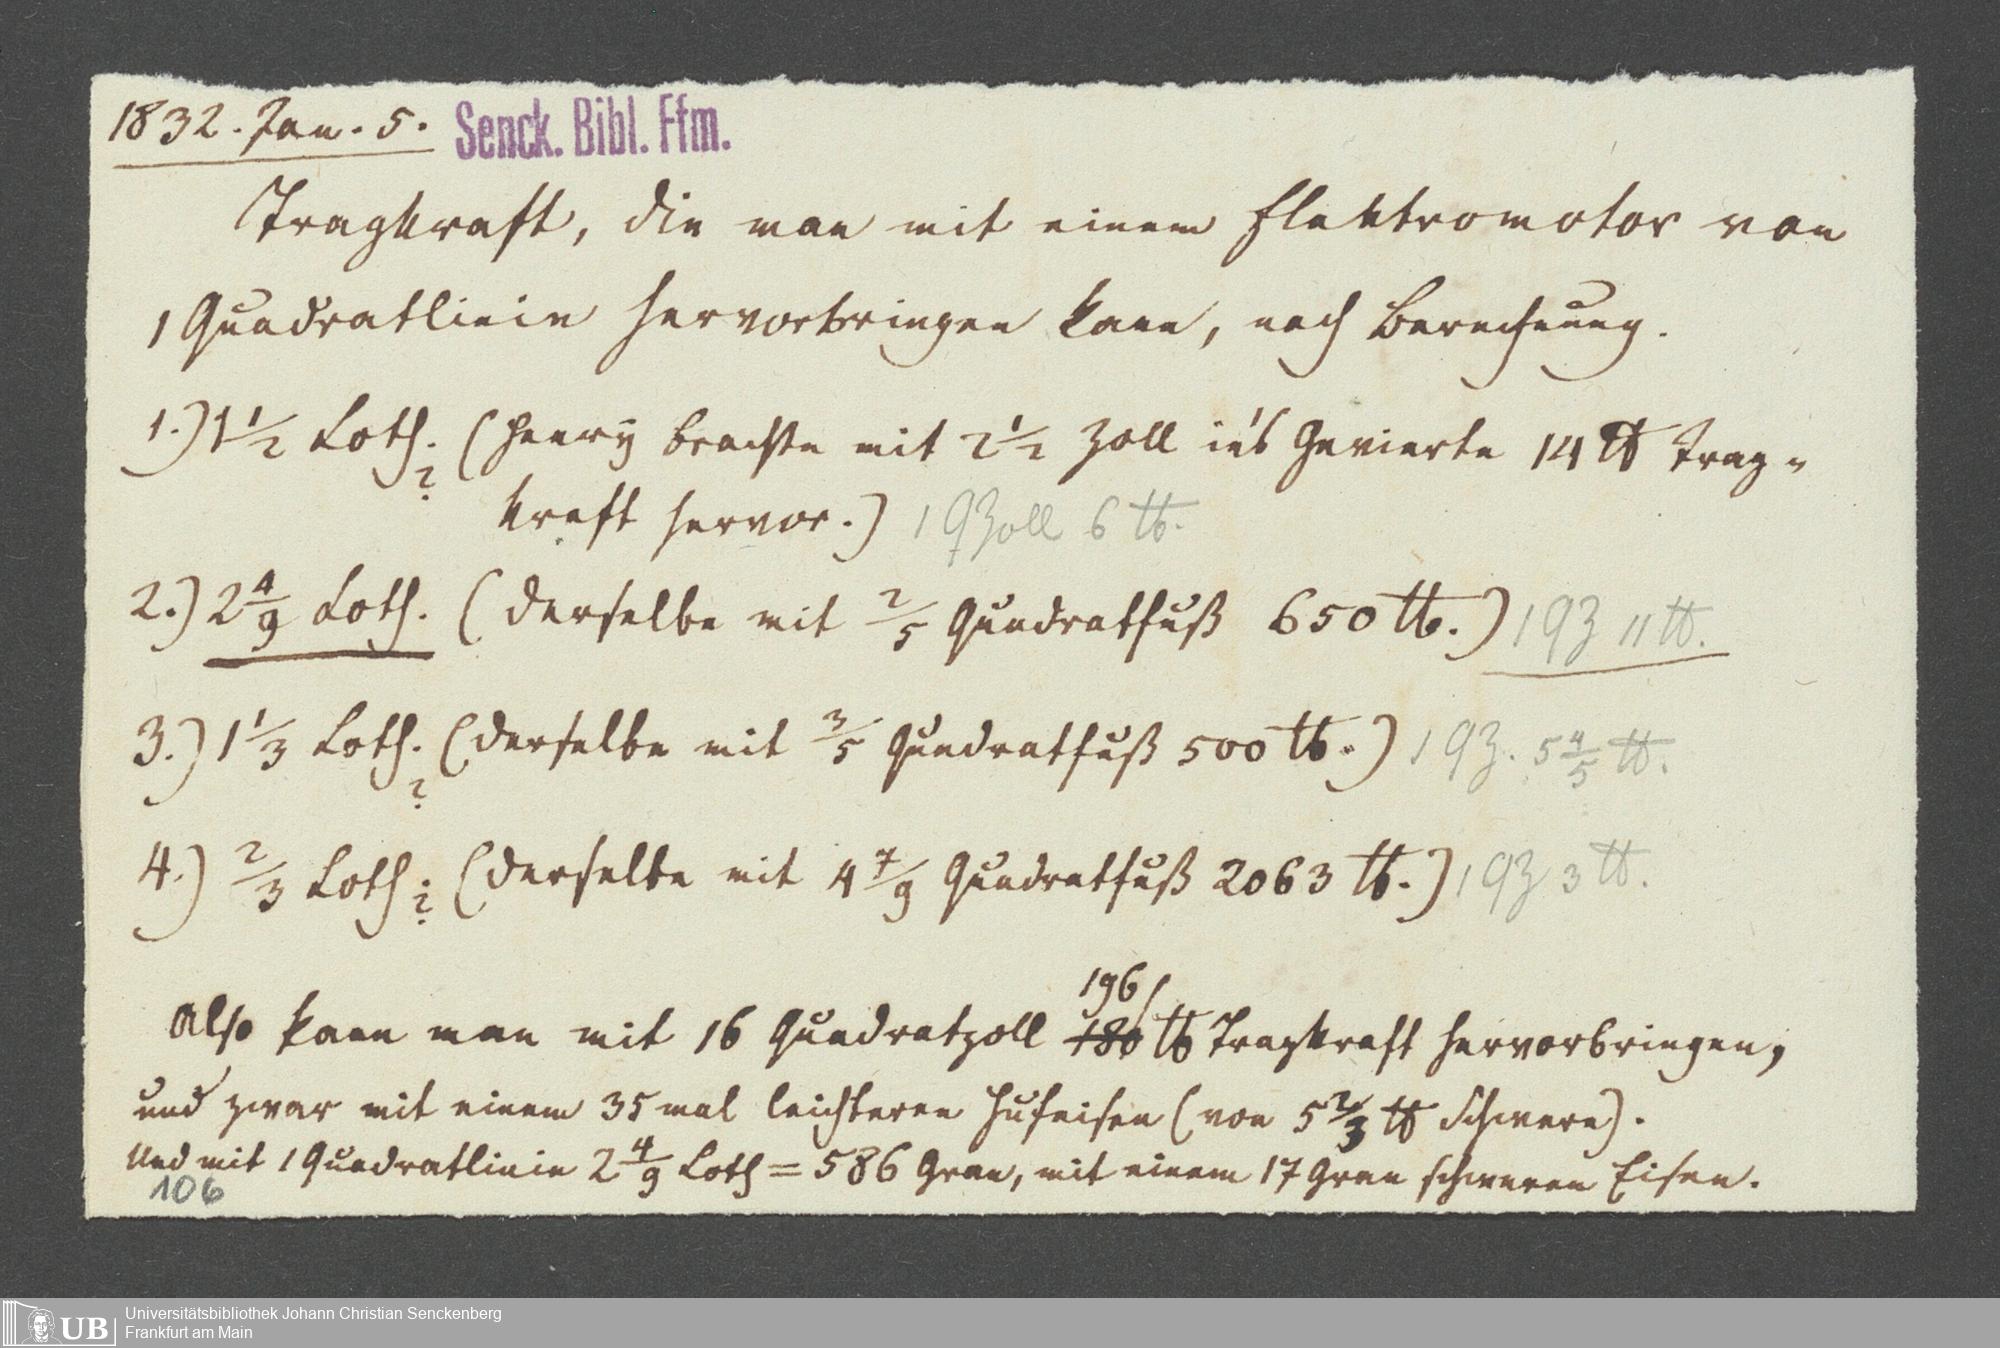 1832. Jan. 5. Senck. Bibl. Ffm.
Tragkraft, die man mit einem Elektromotor von
1 Quadratlinie hervorbringen kann, nach Berechnung.
1.) 1 1/2 Loth. ? (Henry brachte mit 2 1/2 Zoll in's Gevierte 14 ℔ Trag-
kraft hervor.) 1 qZoll 6 ℔.
2.) 2 4/9 Loth. (Derselbe mit 2/5 Quadratfuß 650 ℔.) 1 qZ 11 ℔.
3.) 1 1/3 Loth. ? (Derselbe mit 3/5 Quadratfuß 500 ℔.) 1 qZ. 5 4/5 ℔.
4.) 2/3 Loth. ? (Derselbe mit 4 7/9 Quadratfuß 2063 ℔.) 1 qZ 3 ℔.
196
Also kann man mit 16 Quadratzoll 180 ℔ Tragkraft hervorbringen,
und zwar mit einem 35 mal leichteren Hufeisen (von 5 2/3 ℔ Schwere).
Und mit 1 Quadratlinie 2 4/9 Loth = 586 Gran, mit einem 17 Gran schweren Eisen.
106
UB
Universitätsbibliothek Johann Christian Senckenberg
Frankfurt am Main